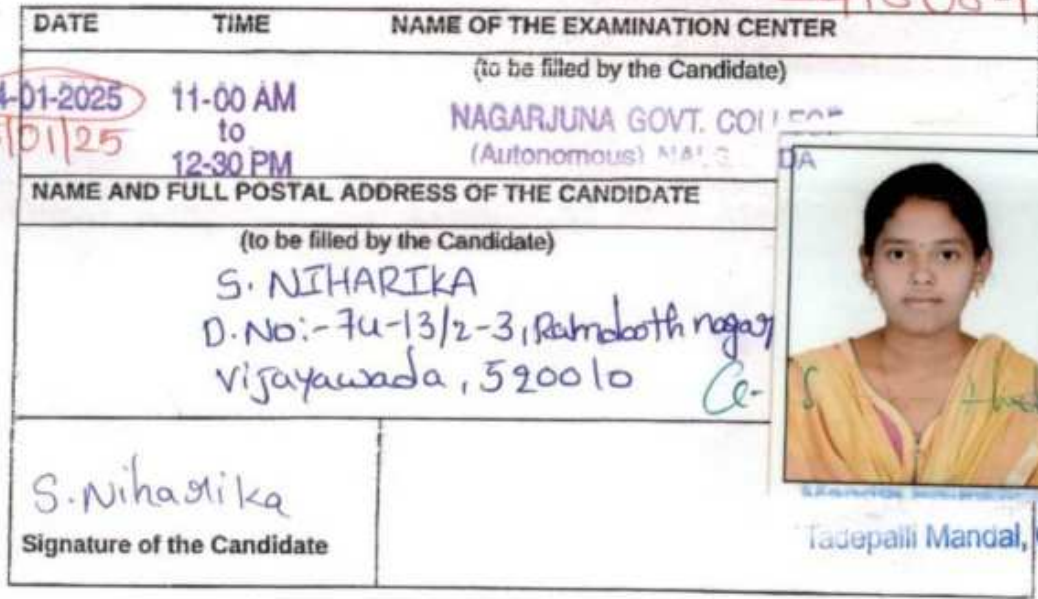 DATE TIME NAME OF THE EXAMINATION CENTER
(to be filled by the Candidate)
-01-2025 11-00 AM NAGARJUNA GOVT.
01/25 to (Autonomous)
12-30 PM
NAME AND FULL POSTAL ADDRESS OF THE CANDIDATE
(to be filled by the Candidate)
S. NIHARIKA
D.No:-74-13/2-3, nagar
Vijayawada, 520010
S.Niharika
Signature of the Candidate
Tadepalli Mandal,